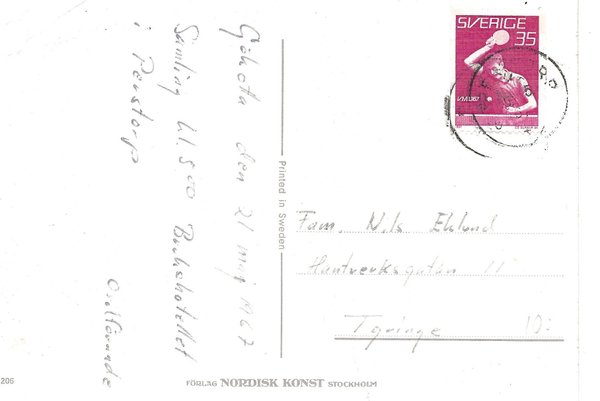 Gökotta den 21 maj 1967
Samling kl. 5.00
i Perstorp
Ordförande
SVERIGE
35
VM 1967
Printed in Sweden
Fam. Nils Eklund
Hantverksgatan 11
10:-
206
FÖRLAG NORDISK KONST STOCKHOLM